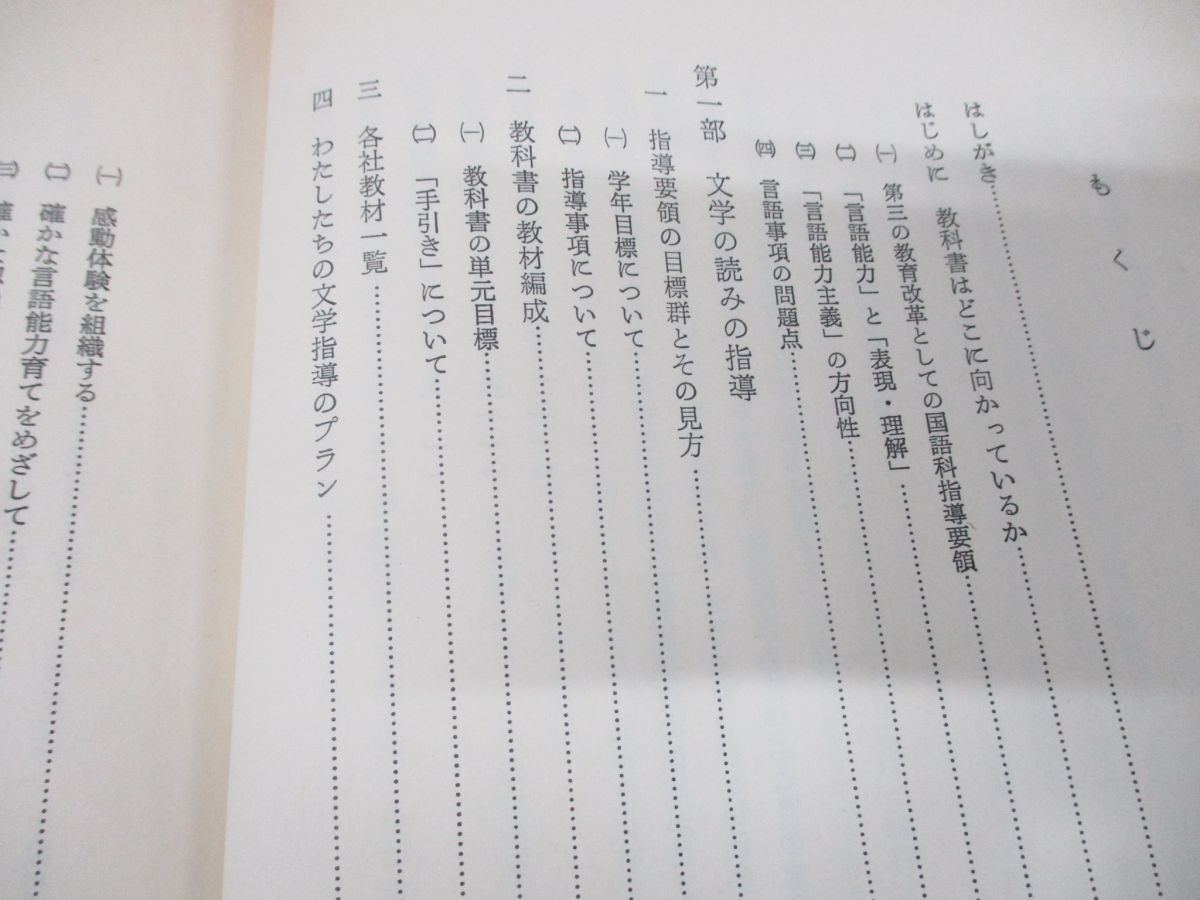 もくじ
はしがき
はじめに 教科書はどこに向かっているか
㈠ 第三の教育改革としての国語科指導要領
㈡ 「言語能力」と「表現・理解」
㈢ 「言語能力主義」の方向性
㈣ 言語事項の問題点
第一部 文学の読みの指導
一 指導要領の目標群とその見方
㈠ 学年目標について
㈡ 指導事項について
二 教科書の教材編成
㈠ 教科書の単元目標
㈡ 「手引き」について
三 各社教材一覧
四 わたしたちの文学指導のプラン
㈠ 感動体験を組織する
㈡ 確かな言語能力育てをめざして
㈢ 確か